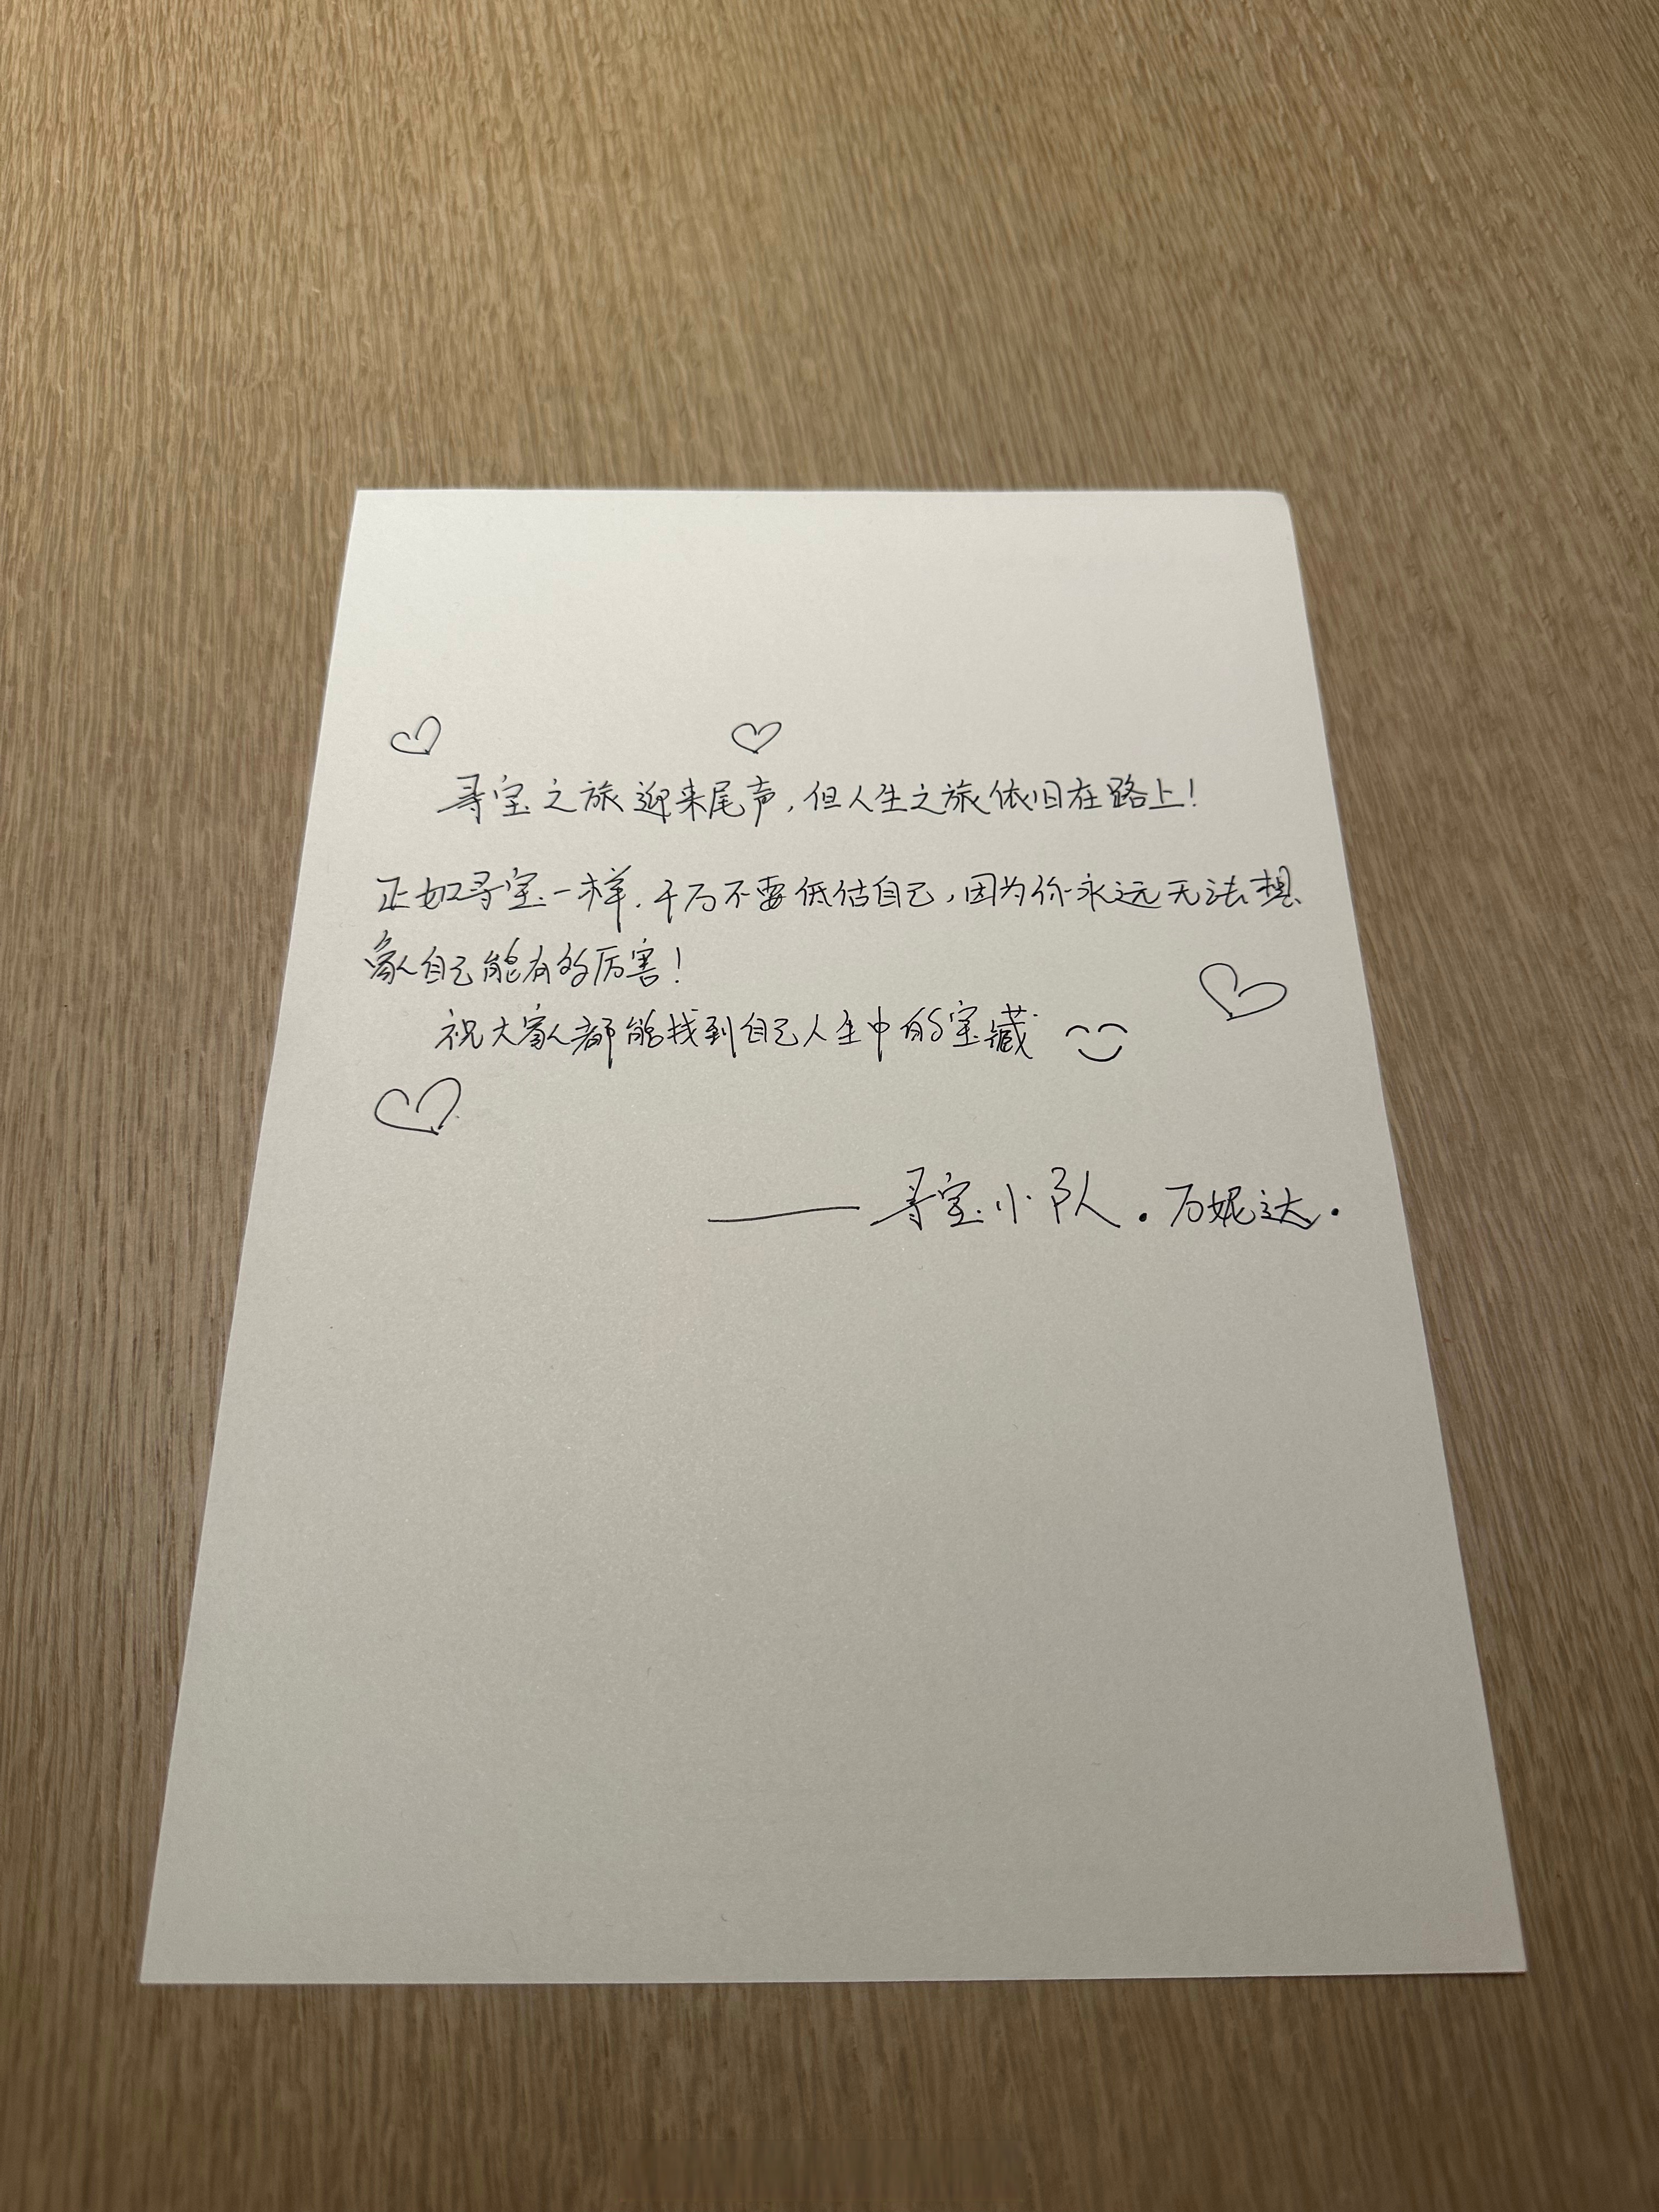 寻宝之旅迎来尾声，但人生之旅依旧在路上！
正如寻宝一样，千万不要低估自己，因为你永远无法想
象自己能有多厉害！
祝大家都能找到自己人生中的宝藏
——寻宝小队·万妮达·